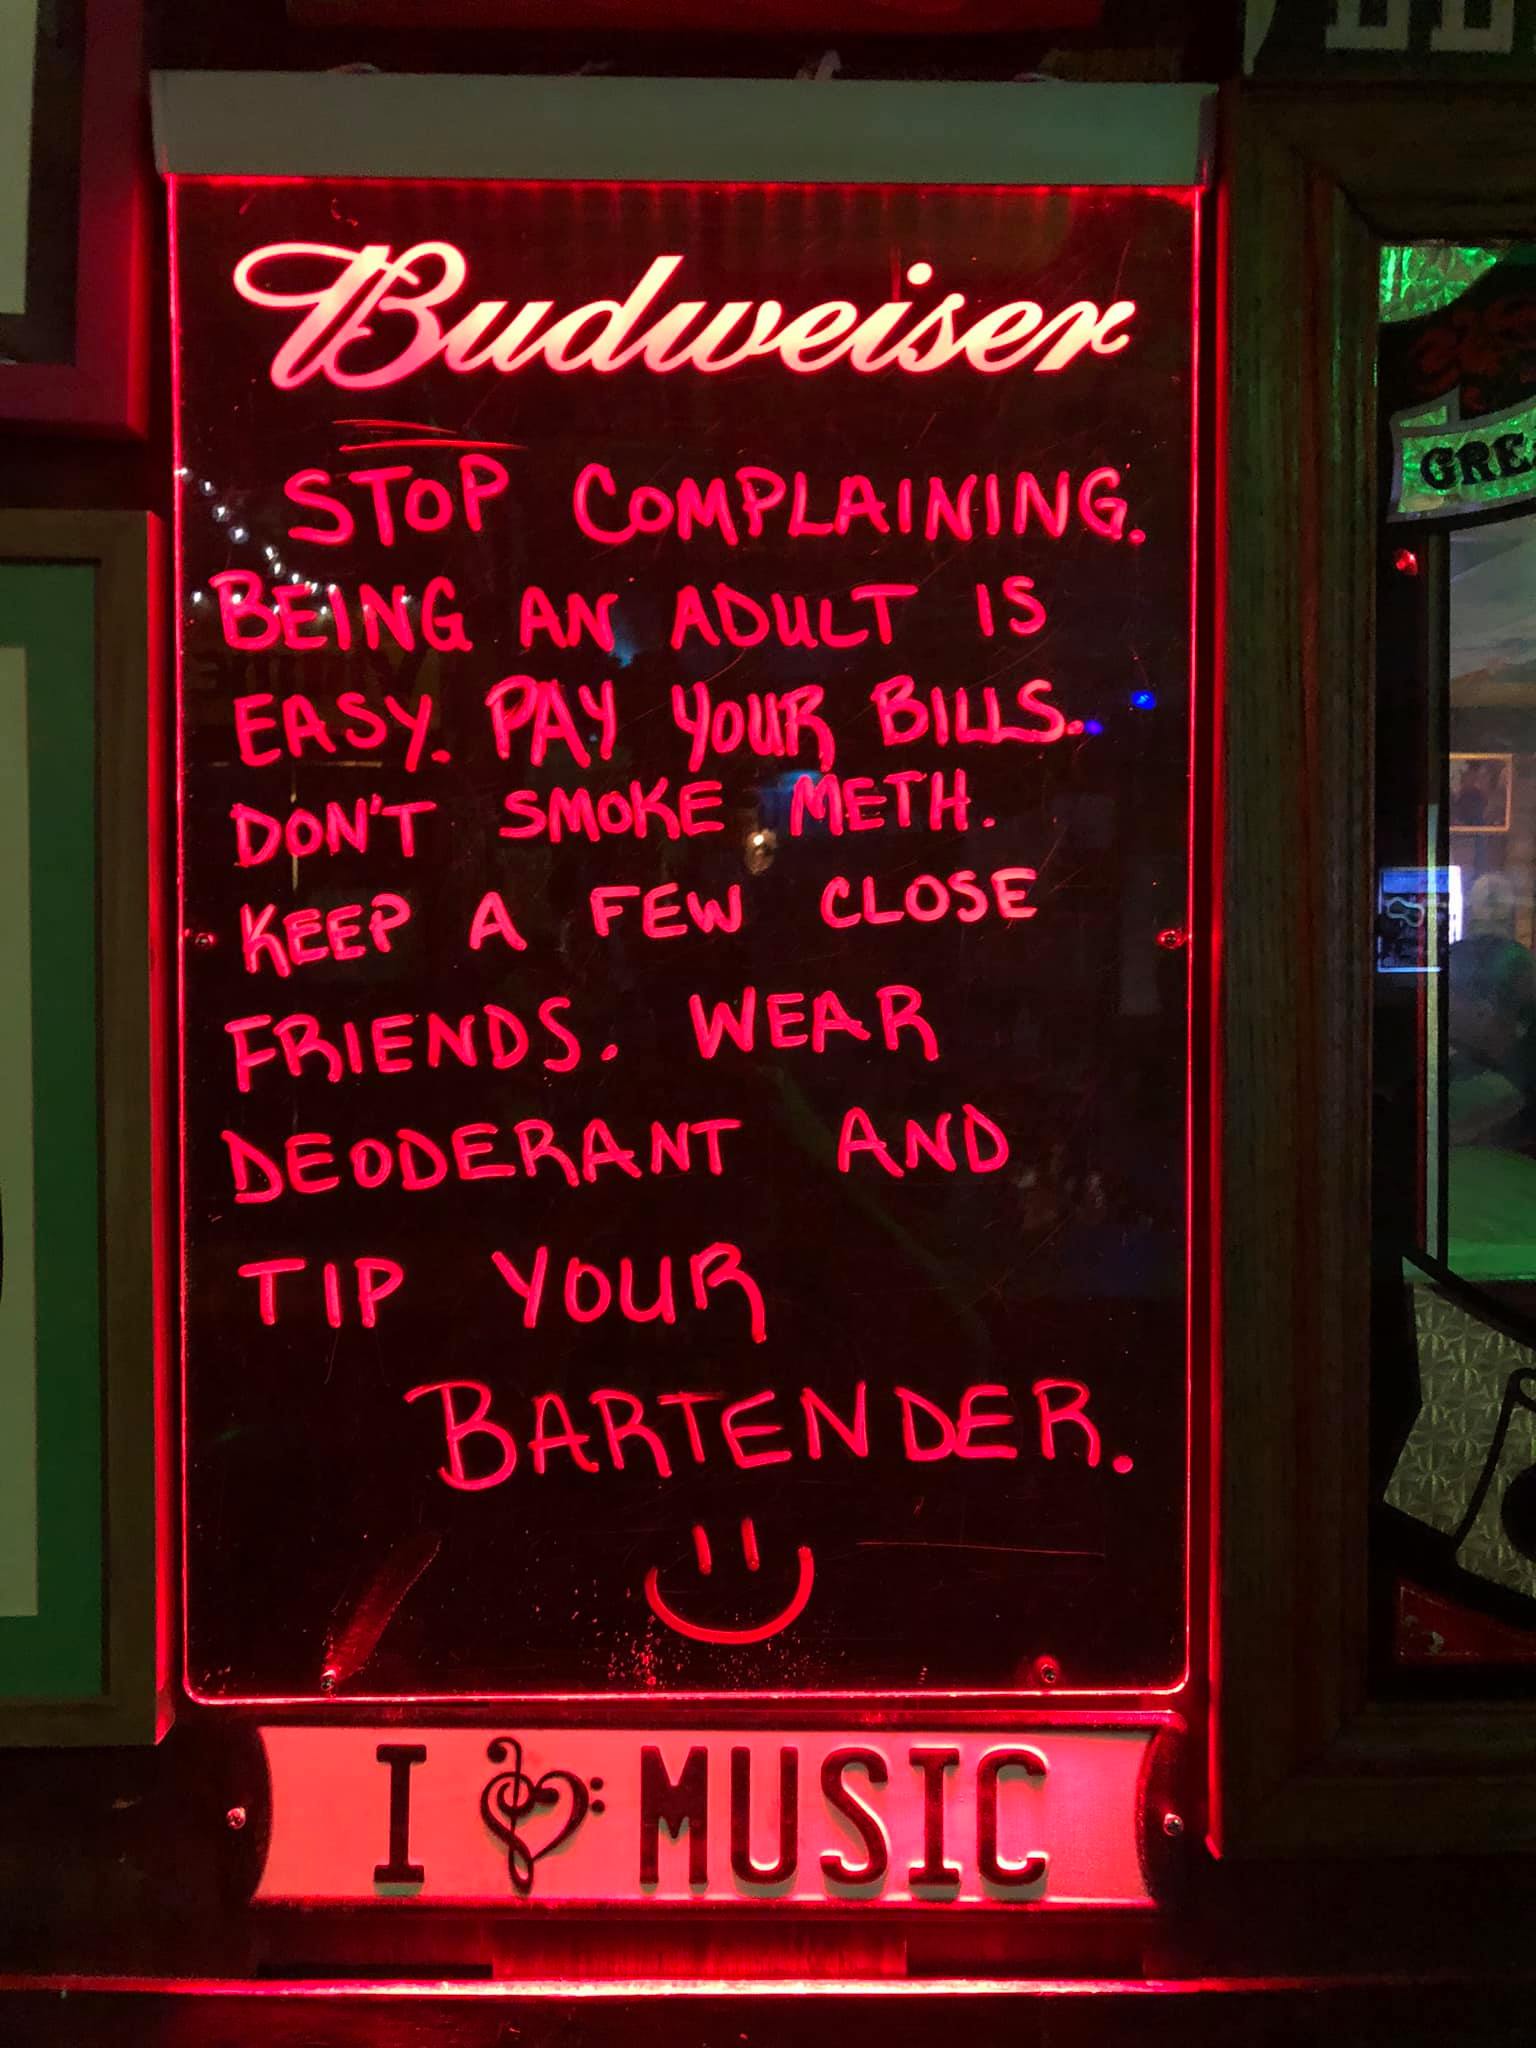 Budweiser
STOP COMPLAINING.
BEING AN ADULT IS
EASY. PAY YOUR BILLS.
DON'T SMOKE METH.
KEEP A FEW CLOSE
FRIENDS. WEAR
DEODERANT AND
TIP YOUR
BARTENDER.
I MUSIC